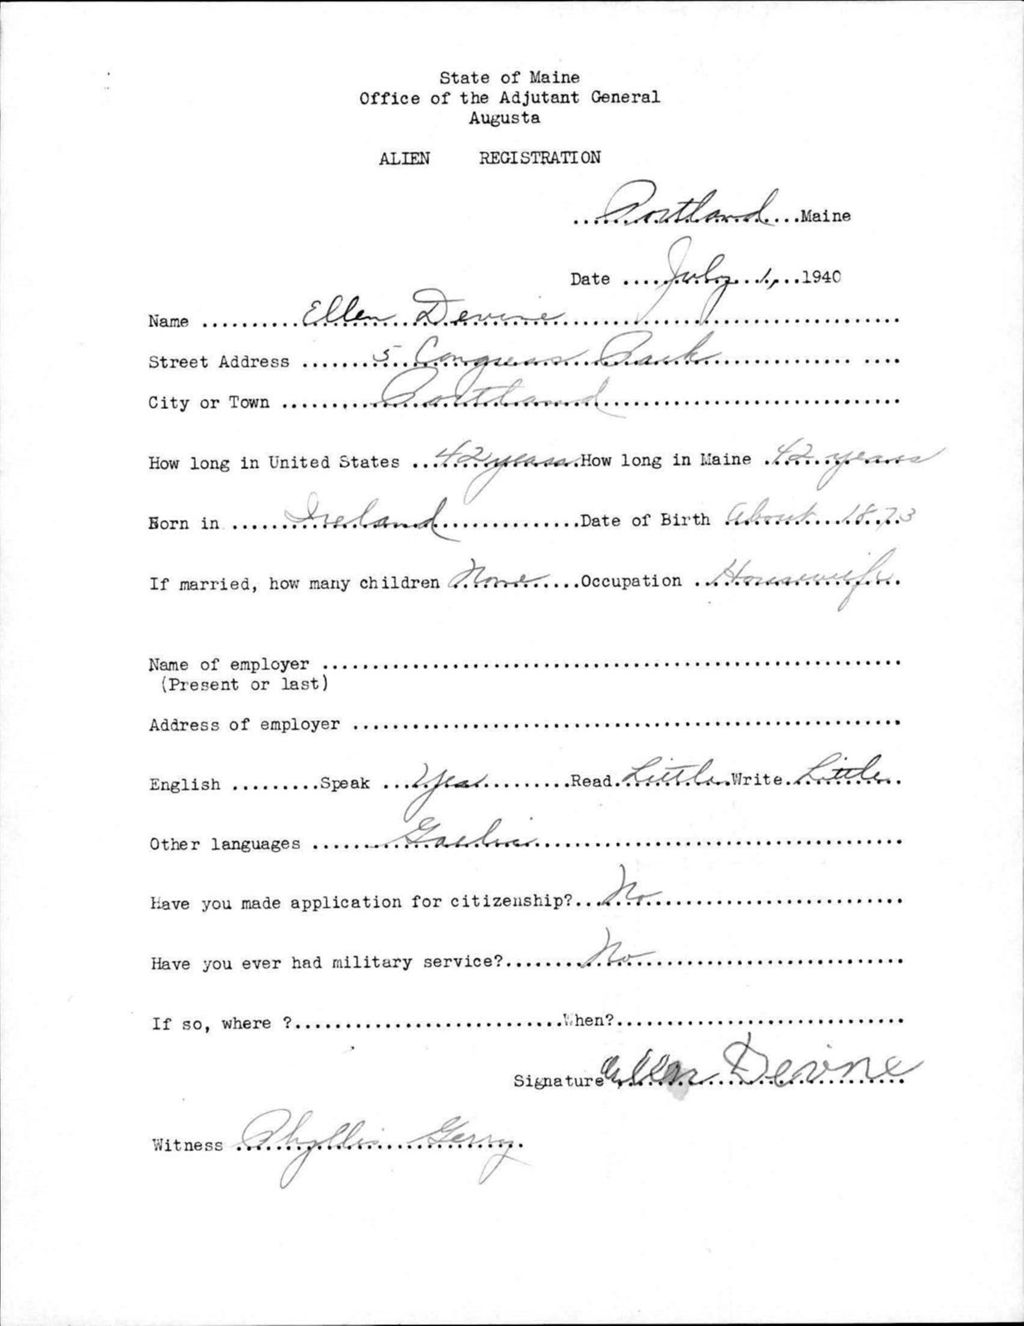 State of Maine
Office of the Adjutant General
Augusta
ALIEN REGISTRATION
Portland Maine
Date July 1, 1940
Name Ellen Devine
Street Address 5 Congress Park
City or Town Portland
How long in United States 42 years How long in Maine 42 years
Born in Ireland Date of Birth About 1873
If married, how many children None Occupation Housewife
Name of employer
(Present or last)
Address of employer
English Speak Yes Read Little Write Little
Other languages Gaelic
Have you made application for citizenship? No
Have you ever had military service? No
If so, where ? When?
Signature Ellen Devine
Witness Phyllis Gerry